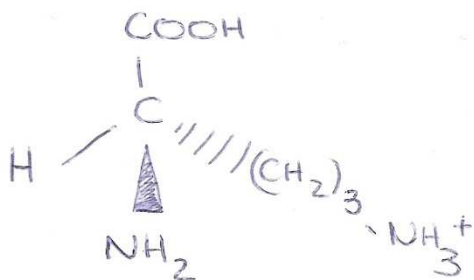 COOH
C
H (CH₂)₃
NH₂ NH₃⁺